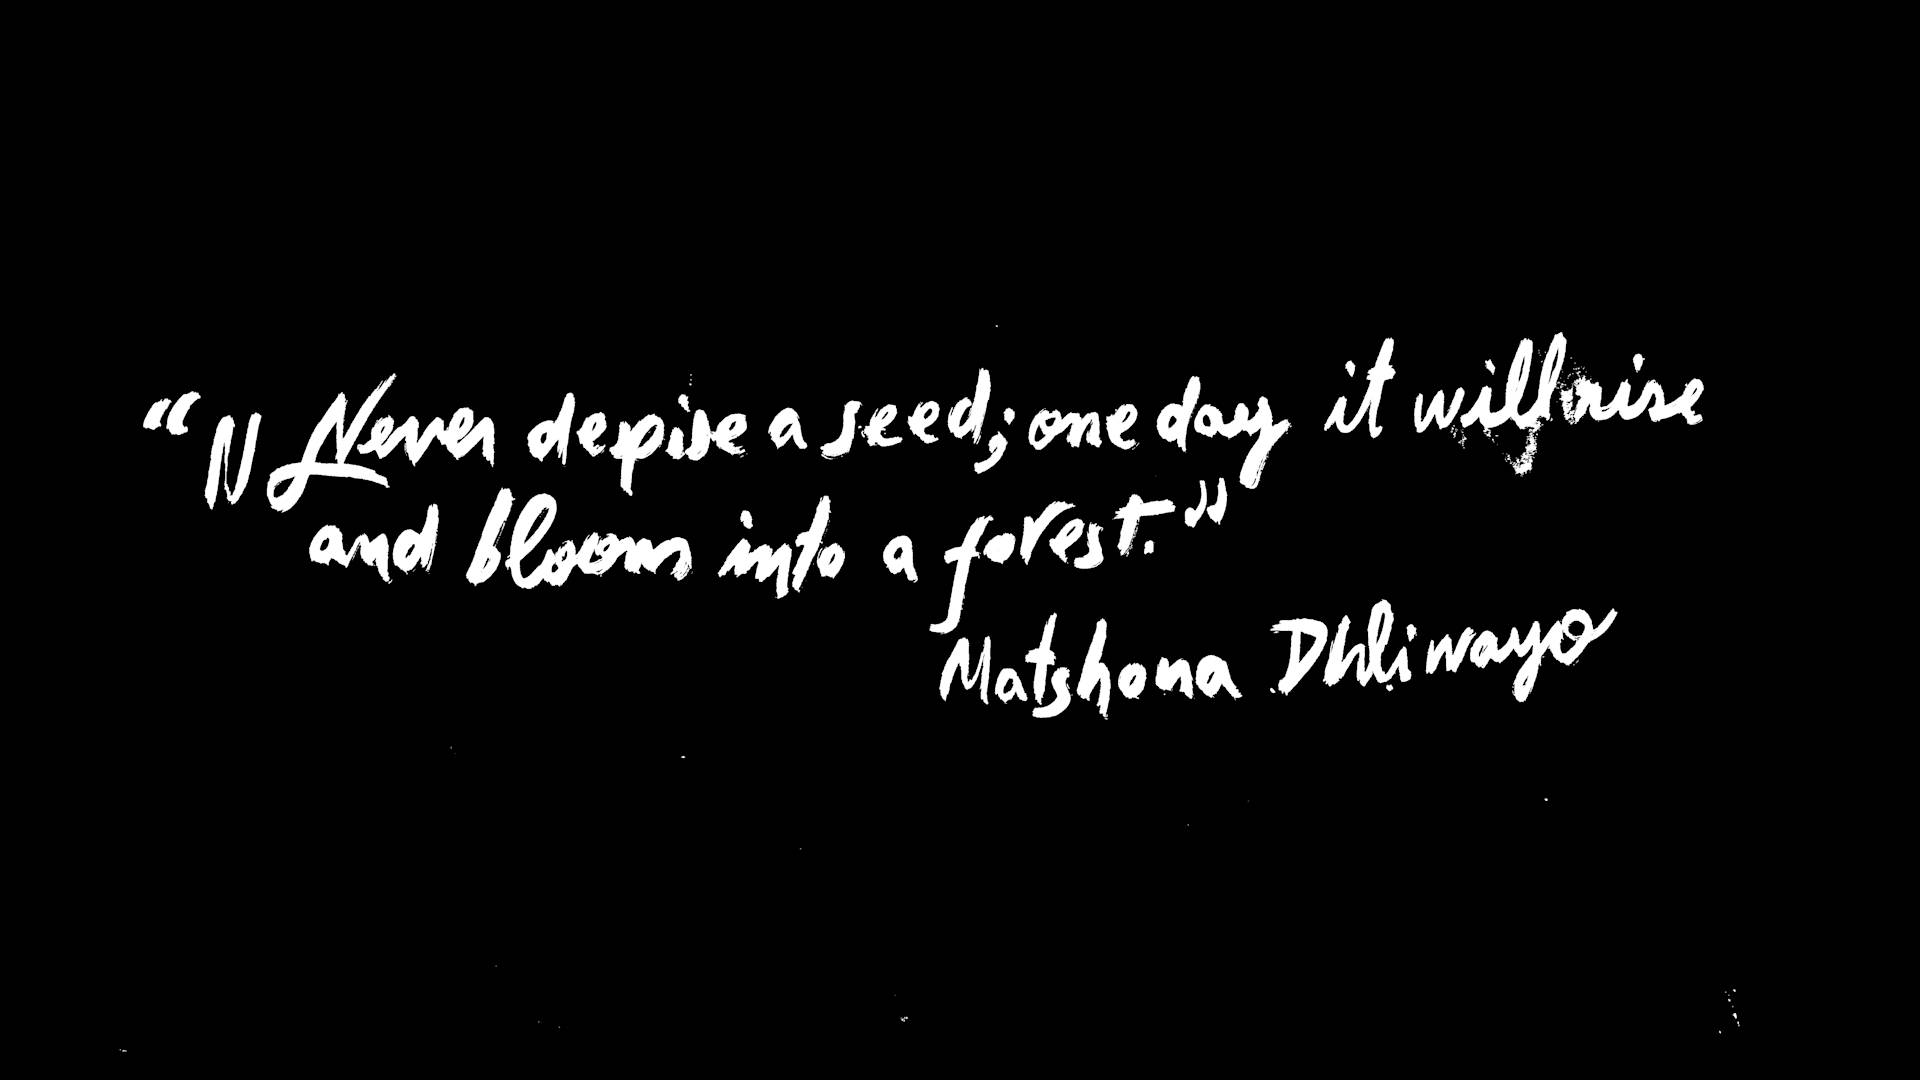 “N Never depise a seed; one day it will rise
and bloom into a forest.”
Matshona Dhliwayo